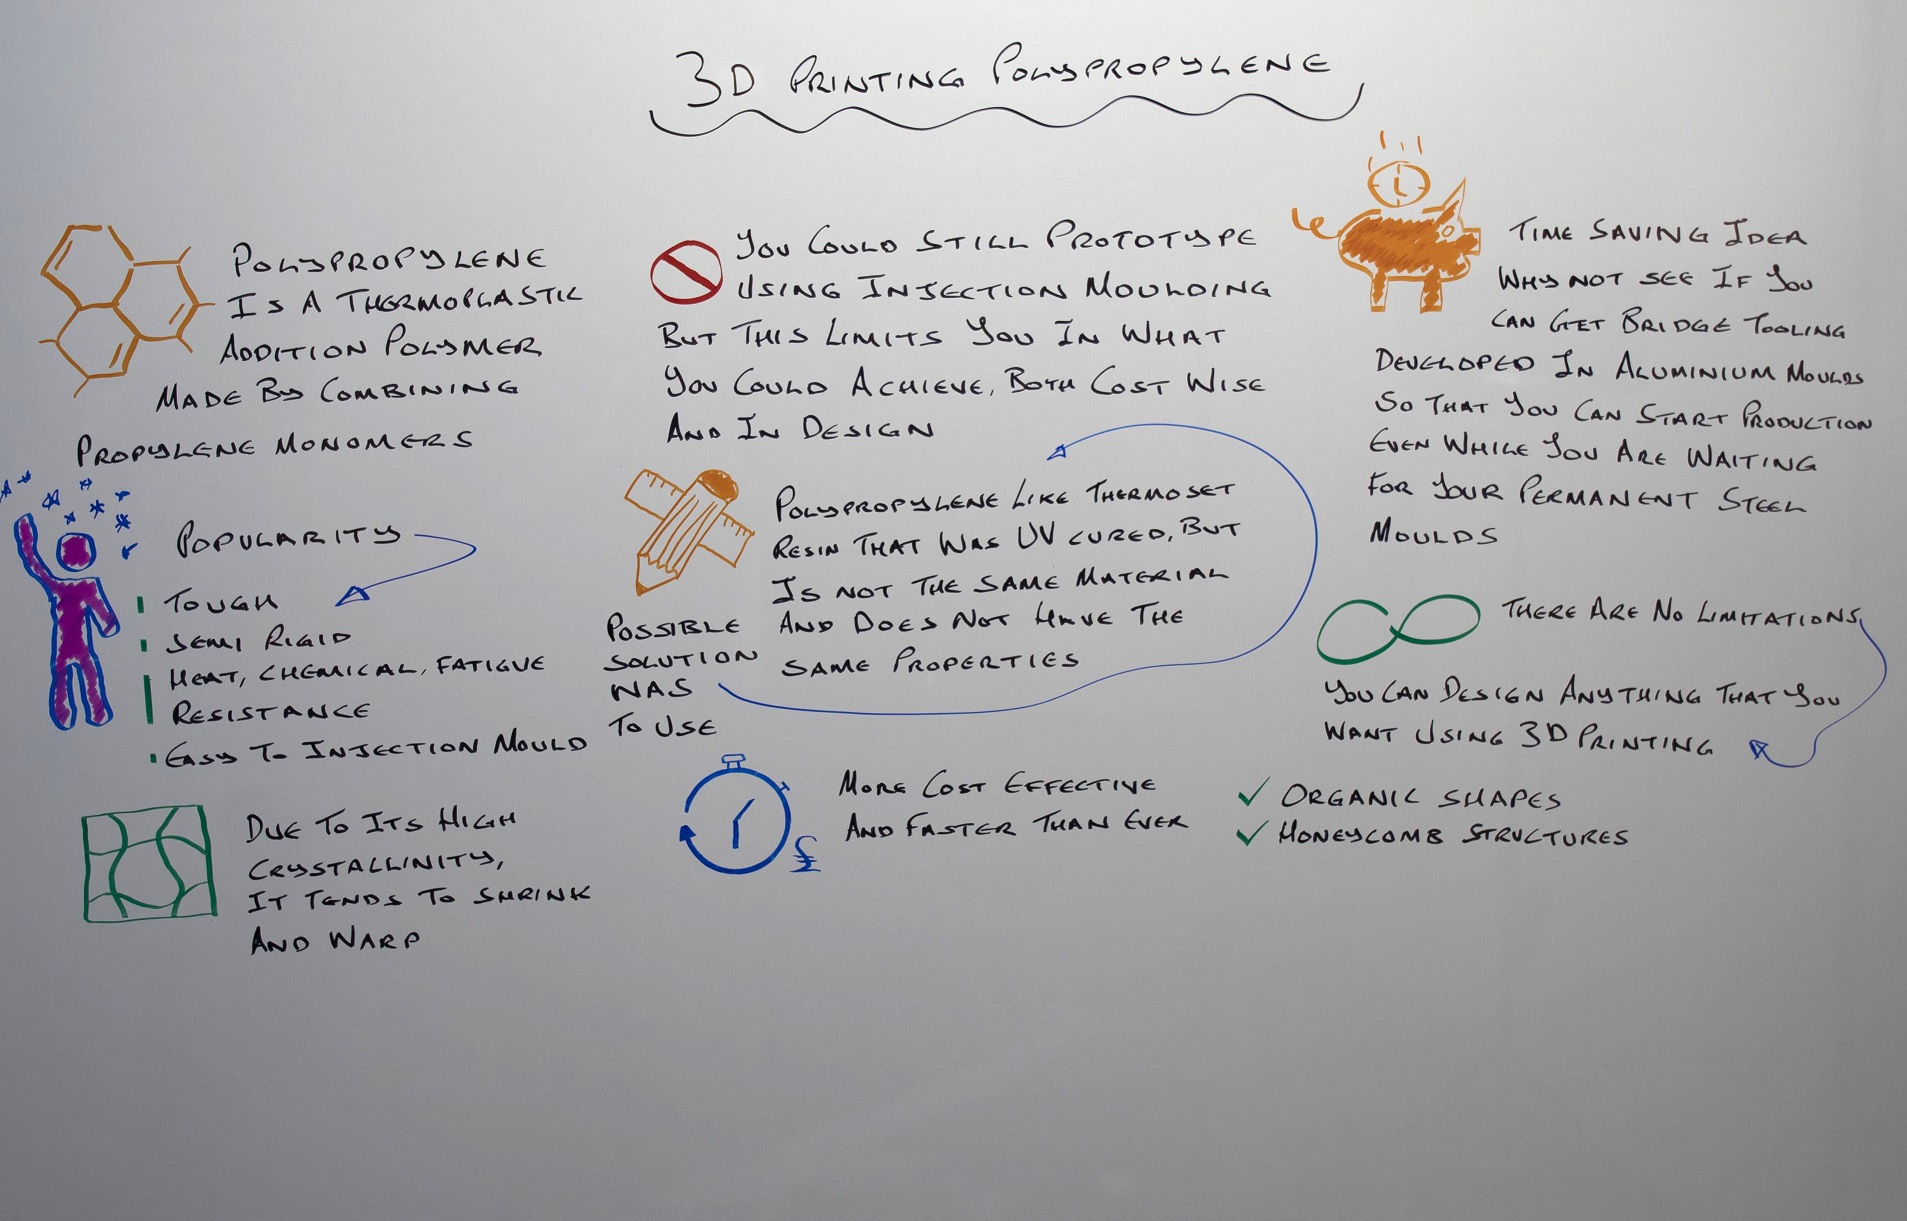 3D PRINTING POLYPROPYLENE
POLYPROPYLENE
IS A THERMOPLASTIC
ADDITION POLYMER
MADE BY COMBINING
PROPYLENE MONOMERS
POPULARITY
TOUGH
SEMI RIGID
HEAT, CHEMICAL, FATIGUE
RESISTANCE
EASY TO INJECTION MOULD
DUE TO ITS HIGH
CRYSTALLINITY,
IT TENDS TO SHRINK
AND WARP
YOU COULD STILL PROTOTYPE
USING INJECTION MOULDING
BUT THIS LIMITS YOU IN WHAT
YOU COULD ACHIEVE, BOTH COST WISE
AND IN DESIGN
POLYPROPYLENE LIKE THERMOSET
RESIN THAT WAS UV CURED, BUT
IS NOT THE SAME MATERIAL
AND DOES NOT HAVE THE
SAME PROPERTIES
POSSIBLE
SOLUTION
WAS
TO USE
£
MORE COST EFFECTIVE
AND FASTER THAN EVER
TIME SAVING IDEA
WHY NOT SEE IF YOU
CAN GET BRIDGE TOOLING
DEVELOPED IN ALUMINIUM MOULDS
SO THAT YOU CAN START PRODUCTION
EVEN WHILE YOU ARE WAITING
FOR YOUR PERMANENT STEEL
MOULDS
THERE ARE NO LIMITATIONS,
YOU CAN DESIGN ANYTHING THAT YOU
WANT USING 3D PRINTING
✓ ORGANIC SHAPES
✓ HONEYCOMB STRUCTURES